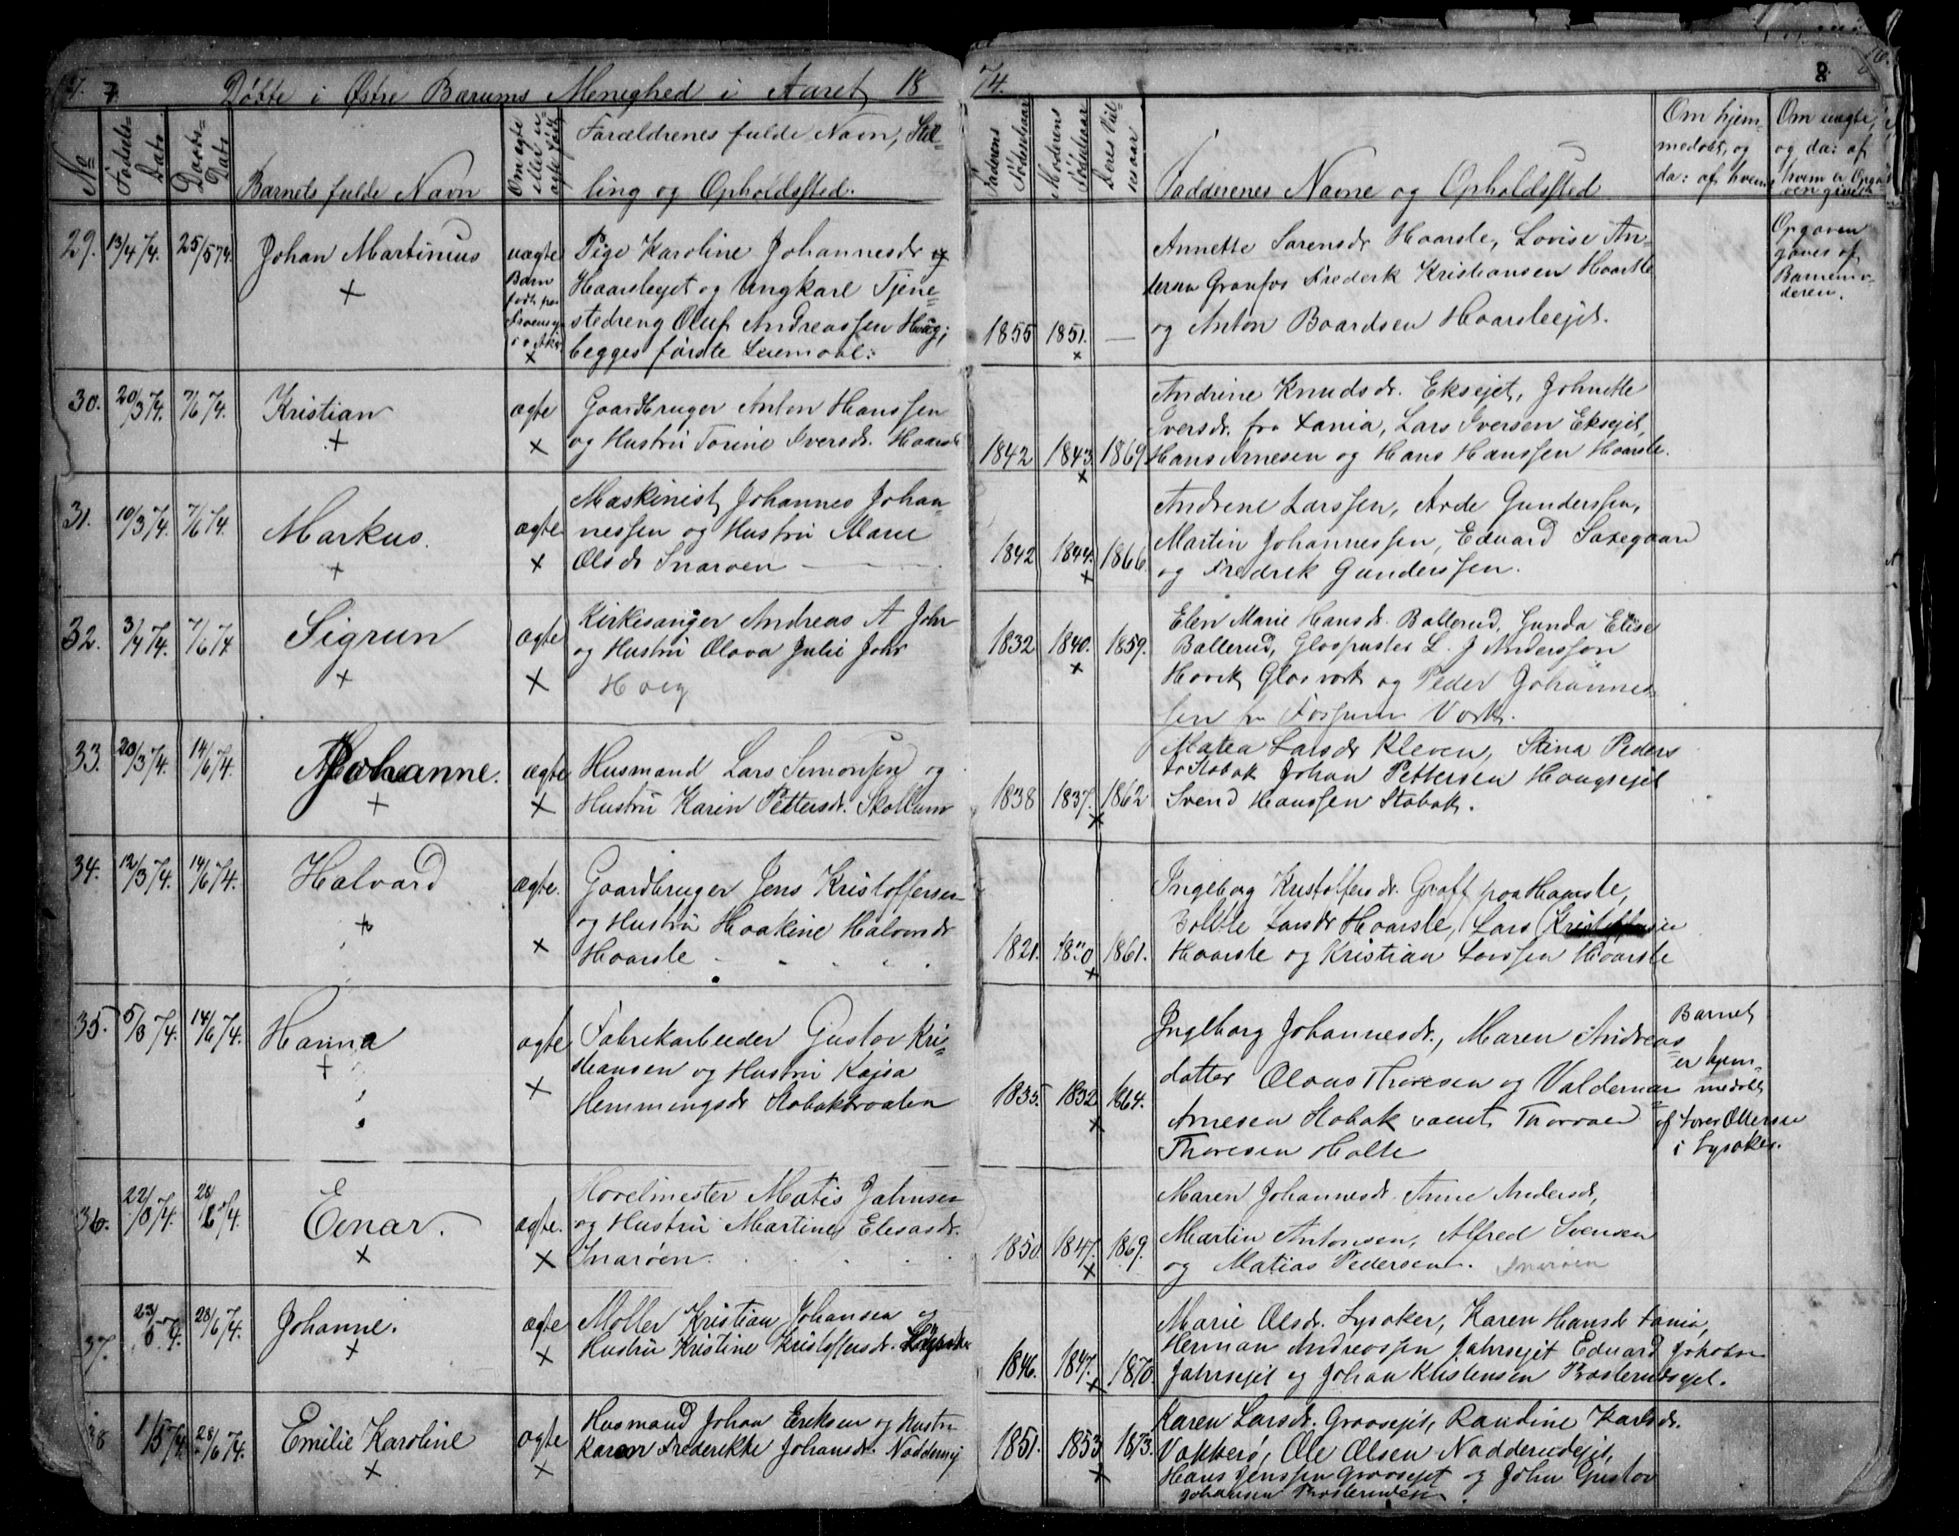 7.
Døbte i Østre Bærums Menighed i Aaret 18
74.
8
No
Fødsels-
Date
Daabs-
Date
Barnets fulde Navn
Om ægte
eller u-
ægte født
Forældrenes fulde Navn, Stil-
ling og Opholdssted.
Faderens
Fødselsaar
Moderens
Fødselsaar
Deres Viel-
sesaar
Fadderenes Navne og Opholdssted
Om hjem-
medøbt, og
da: af hvem
Om uægte,
og da: af
hvem er Opga-
ven givet
29. 13/4 74. 25/5 74. Johan Martinius
uægte
Barn
født paa
Pige Karoline Johannesdr
Haarslejet og Ungkarl Tjene-
stedreng Oluf Andreassen Haug;
begges første Leiermaal.
1855 1851. —
Annette Sørensdr Haarsle, Lovise An-
dersen Granfos Frederk Kristiansen Haarsle
og Anton Baardsen Haarsleejet.
Opgaven
gaves af
Barnemo-
deren.
30. 20/3 74. 7/6 74. Kristian
ægte
Gaardbruger Anton Hanssen
og Hustru Torine Iversdr. Haarsle
1842 1843 1869
Andrine Knudsdr. Eksejet, Johnette
Iversdr. fra Fania, Lars Iversen Eksejet,
Hans Arnesen og Hans Hanssen Haarsle.
31. 10/3 74. 7/6 74. Markus.
ægte
Maskinist Johannes Johan-
nessen og Hustru Marie
Olsdr Snarøen
1842 1844. 1866
Andrene Larssen, Arde Gunderssen,
Martin Johannessen, Eduard Saxegaard
og Fredrik Gunderssen.
32. 3/4 74. 7/6 74 Sigrun
ægte
Kirkesanger Andreas A Johr
og Hustru Olava Julie Johr
Haug
1832 1840. 1859.
Elen Marie Hansdr. Ballerud, Gunda Elise
Ballerud, Glaspuster L. J Anderssøn
Høvik Glasværk og Peder Johannes-
sen fra Fossum Værk.
33. 20/3 74. 14/6 74. Johanne.
ægte
Husmand Lars Simonsen og
Hustru Karin Pettersdr. Skollum
1838 1837. 1862
Matea Larsdr Kleven, Stina Peders
dr Stabæk Johan Pettersen Haugsejet
Svend Hanssen Stabæk.
34. 12/3 74. 14/6 74. Halvard
ægte.
Gaardbruger Jens Kristoffersen
og Hustru Haakine Halvorsdr
Haarsle
1821. 1861.
Ingeborg Kristoffersdr. Graff paa Haarsle,
Larsdr Haarsle, Lars
Haarsle og Kristian Larssen Haarsle
35. 5/3 74. 14/6 74. Hanna
ægte
Fabrikarbeider Gustav Kri-
stiansen og Hustru Kajsa
Hemmingsdr Stabækbraaten
1835. 1832 1864.
Ingeborg Johannesdr., Maren Andreas-
datter Olaus Thoresen og Valdemar
Arnesen Stabæk samt Thorvald
Thoresen Holte
Barnet
er hjem-
medøbt
af Tover Ottersen
i Lysaker.
36. 22/3 74. 28/6 74. Einar.
ægte.
Høvelmester Matis Jahnsen
og Hustru Martines Eliasdr.
Snarøen.
1850 1847. 1869.
Maren Johannesdr. Anne Andersdr,
Martin Antonsen, Alfred Svensen
og Matias Pedersen. Snarøen
37. 23/5 74. 28/6 74. Johanne.
ægte
Møller Kristian Johansen og
Hustru Kristine Kristoffersdr. Lysaker
1846. 1847. 1870
Marie Olsdr. Lysaker, Karen Hansdr Fania,
Herman Andreassen Jahrsejet Eduard Johansen
Jahrsejet og Johan Kristensen Prosterudsejet.
38 1/5 74 28/6 74. Emilie Karoline
ægte
Husmand Johan Eriksen og Hustru
Karen Frederikke Johansdr. Nadderudej
1851. 1853 1873.
Karen Larsdr. Graavsejet, Randine Karlsdr.
Vækkerø, Ole Olsen Nadderudejet,
Hans Jenssen Graavsejet og John Gustav
Johansen Prosterudsej